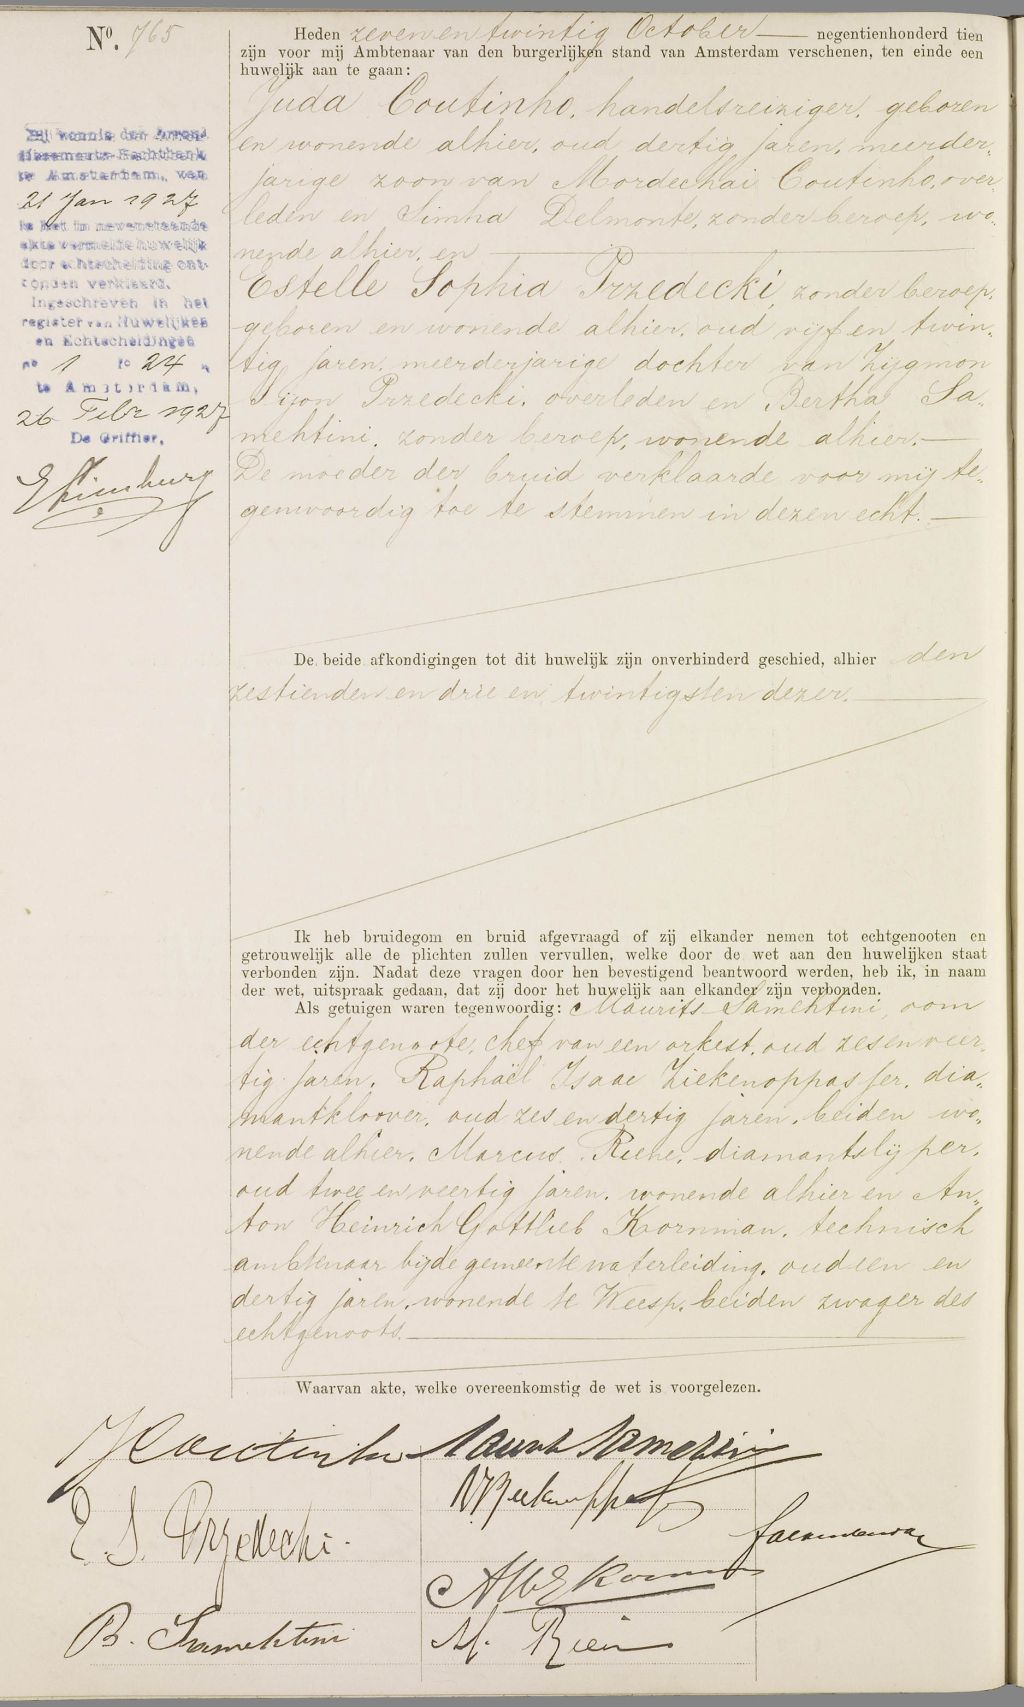 Nº. 765
Heden zeven en twintig October negentienhonderd tien
zijn voor mij Ambtenaar van den burgerlijken stand van Amsterdam verschenen, ten einde een
huwelijk aan te gaan:
Juda Coutinho, handelsreiziger, geboren
en wonende alhier, oud dertig jaren, meerder„
jarige zoon van Mordechai Coutinho, over„
leden en Simha Delmonte, zonder beroep, wo„
nende alhier, en
Estelle Sophia Przedecki, zonder beroep,
geboren en wonende alhier, oud vijf en twin„
tig jaren, meerderjarige dochter van Zijgmon
Sijon Przedecki, overleden en Bertha Sa„
mehtini, zonder beroep, wonende alhier.
De moeder der bruid verklaarde voor mij te„
genwoordig toe te stemmen in dezen echt.
De beide afkondigingen tot dit huwelijk zijn onverhinderd geschied, alhier den
zestienden en drie en twintigsten dezer.
Ik heb bruidegom en bruid afgevraagd of zij elkander nemen tot echtgenooten en
getrouwelijk alle de plichten zullen vervullen, welke door de wet aan den huwelijken staat
verbonden zijn. Nadat deze vragen door hen bevestigend beantwoord werden, heb ik, in naam
der wet, uitspraak gedaan, dat zij door het huwelijk aan elkander zijn verbonden.
Als getuigen waren tegenwoordig: Maurits Samehtini, oom
der echtgenoote, chef van een orkest, oud zes en veer„
tig jaren, Raphaël Isaac Ziekenoppasser, dia„
mantkloover, oud zes en dertig jaren, beiden wo„
nende alhier, Marcus Riene, diamantslijper,
oud twee en veertig jaren, wonende alhier en An„
ton Heinrich Gottlieb Kornman, technisch
ambtenaar bij de gemeente waterleiding, oud een en
dertig jaren, wonende te Weesp, beiden zwager des
echtgenoots.
Waarvan akte, welke overeenkomstig de wet is voorgelezen.
Bij vonnis der Arrond
dissements-Rechtbank
te Amsterdam, van
21 Jan 1927
is het in nevenstaande
akte vermelde huwelijk
door echtscheiding ont-
bonden verklaard.
Ingeschreven in het
register van Huwelijken
en Echtscheidingen
no 1 fo 24
te Amsterdam,
26 Febr 1927
De Griffier,
J Coutinho
E. S. Przedecki.
B. Samehtini
Maurits Samehtini
M. Riene